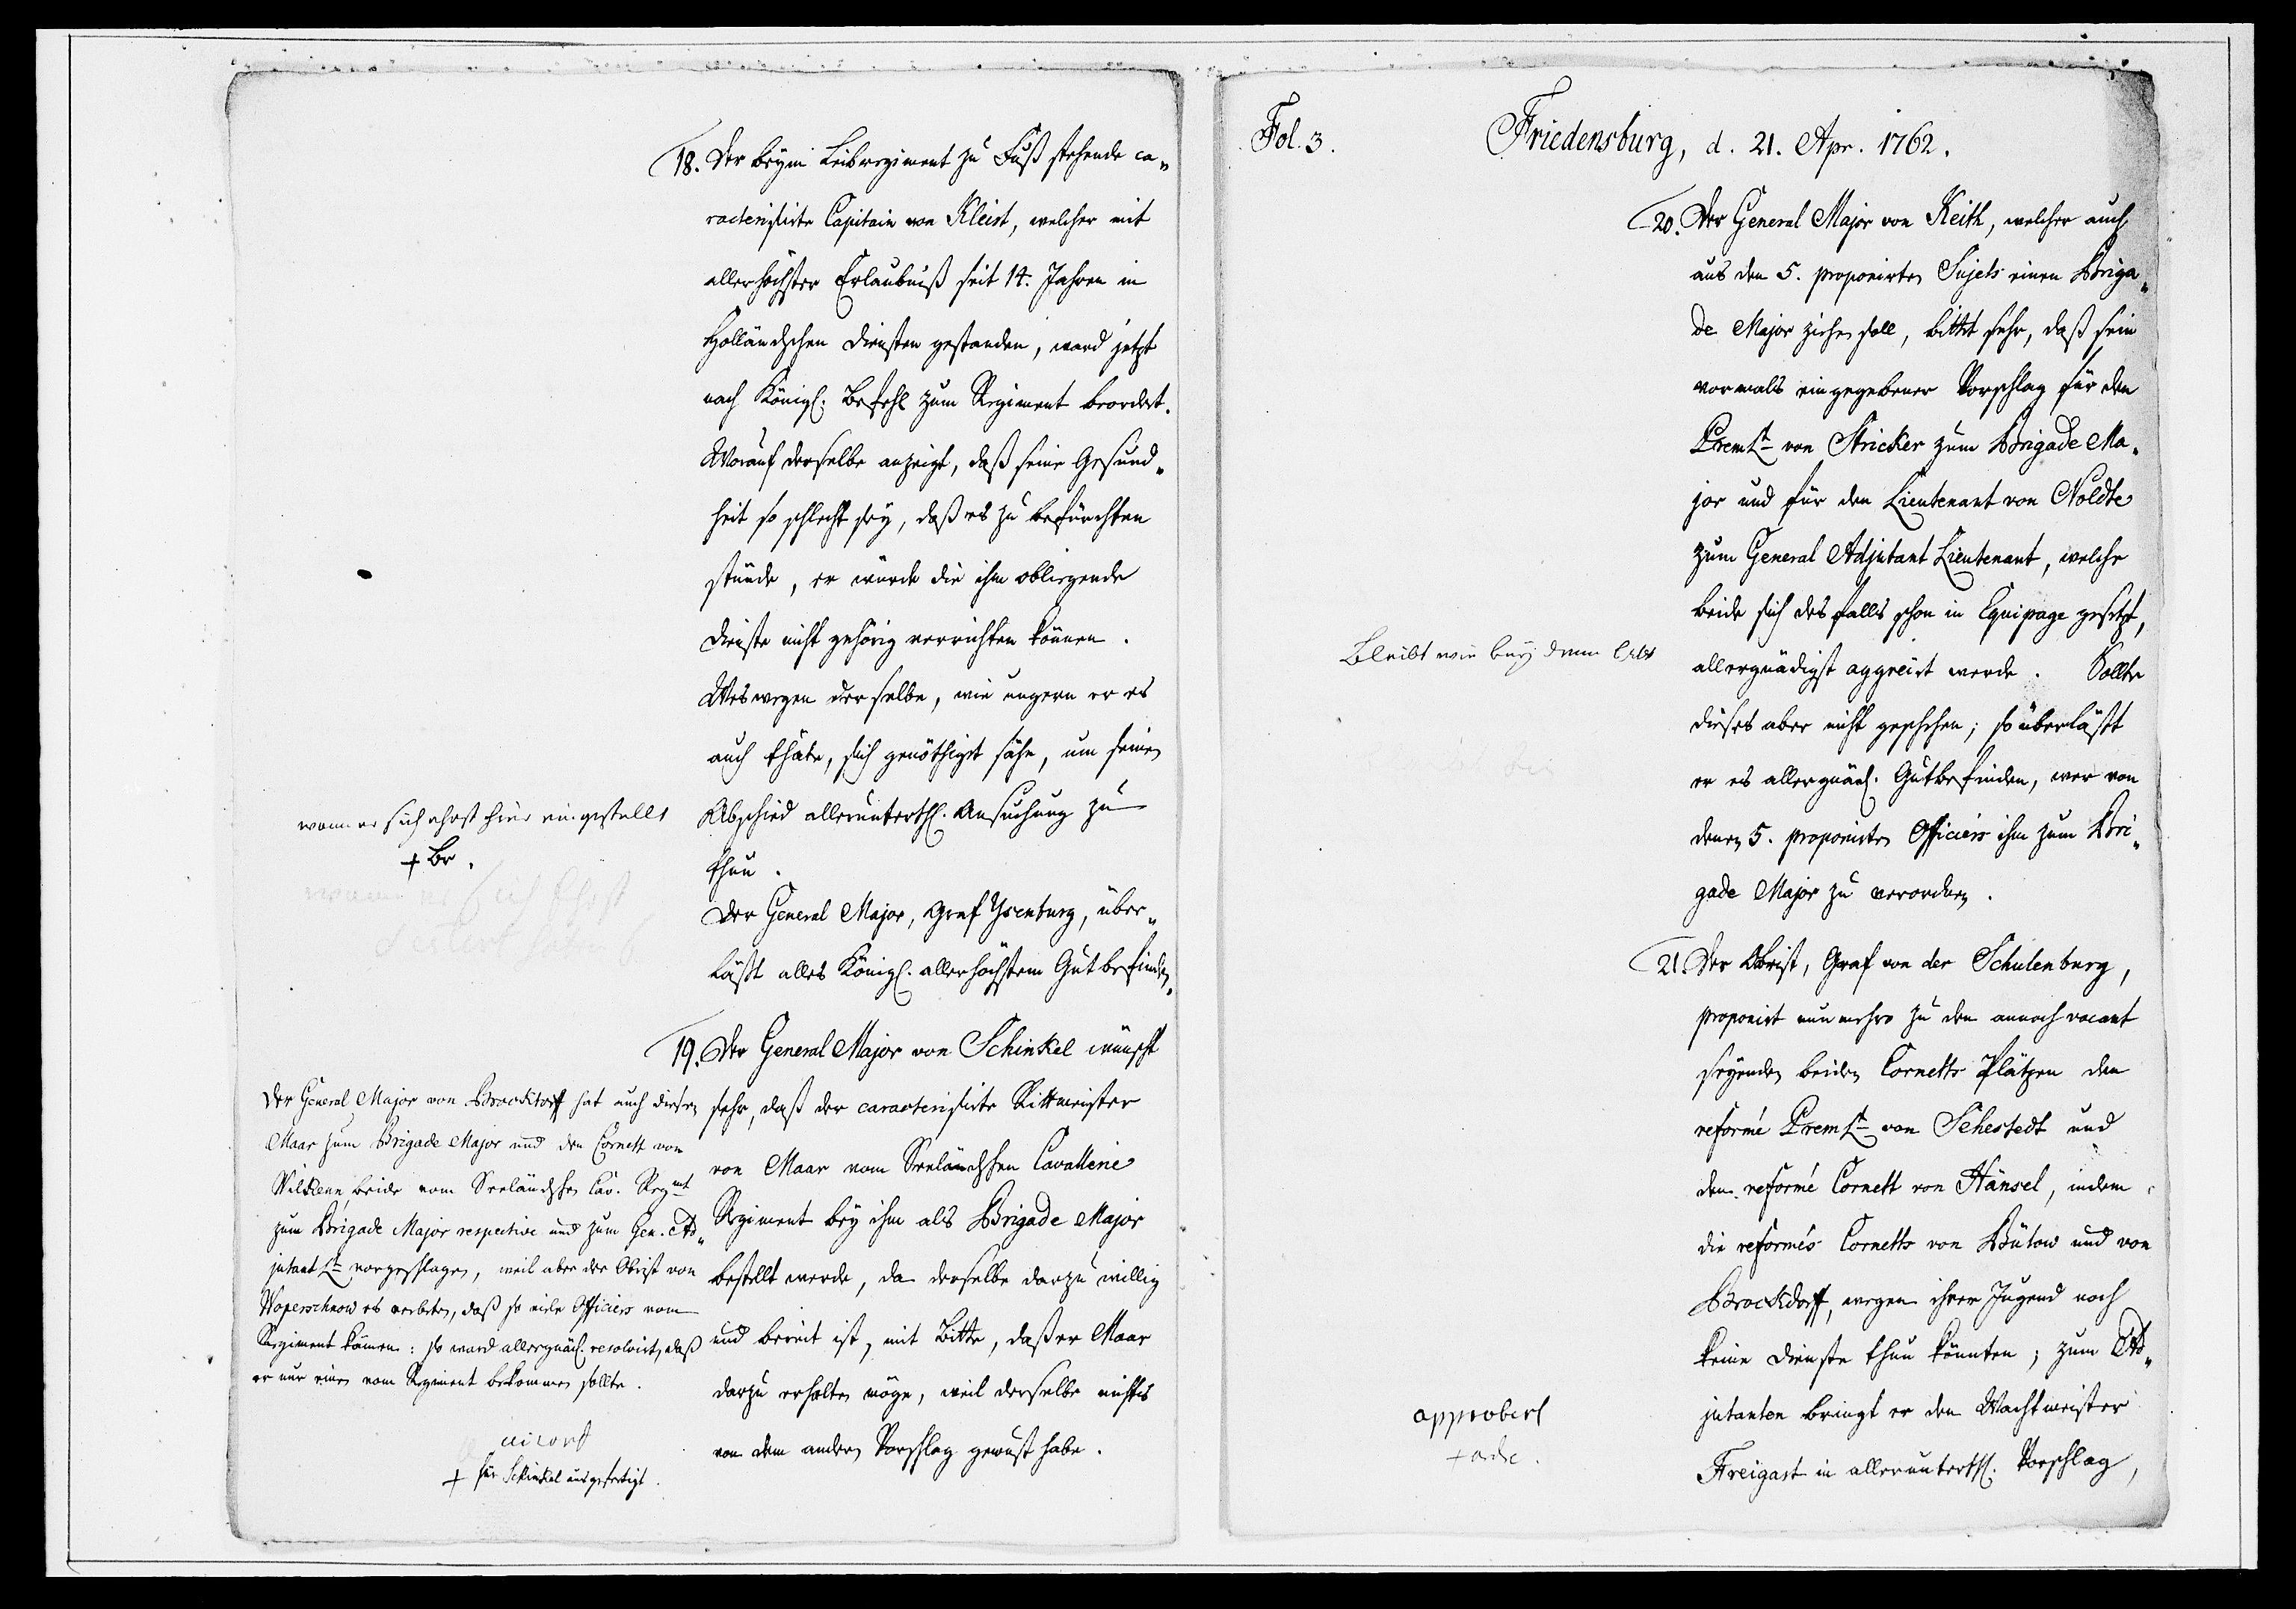 18. Der beym Leibregiment zu Fuß stehende ca„
racterisirte Capitain von Kleist, welcher mit
allerhöchster Erlaubniß seit 14. Jahren in
Holländschen Diensten gestanden, ward jetzt
nach Königl. Befehl zum Regiment beordert.
Worauf derselbe anzeigt, daß seine Gesund„
heit so schlecht sey, daß es zu befürchten
stünde, er würde die ihm obliegende
Dienste nicht gehörig verrichten können.
Weswegen derselbe, wie ungern er es
auch thäte, sich genöthiget sähe, um seinen
Abschied allerunterthl. Ansuchung zu
thun.
wann er sich ehrst hier eingestellt
+ Br.
wann er sich Ehrst
Der General Major, Graf Ysenburg, über„
läßt alles Königl. allerhöchstem Gutbefinden.
19. Der General Major von Schinkel wünscht
sehr, daß der caracterisirte Rittmeister
von Maar vom Seeländschen Cavallerie
Regiment bey ihm als Brigade Major
bestellt werde, da derselbe darzu willig
und bereit ist, mit Bitte, daß er Maar
darzu erhalten möge, weil derselbe nichts
von dem andern Vorschlag gewust habe.
Der General Major von Brockdorff hat auch diesen
Maar zum Brigade Major und den Cornett von
Wilkenn, beide vom Seeländschen Cav. Regmt
zum Brigade Major respective und zum Gen. Ad„
jutant Lt vorgeschlagen, weil aber der Obrist von
Woperschnow es verbeten, daß so viele Officiers vom
Regiment kämen: so ward allergnäd. resolvirt, daß
er nur einen vom Regiment bekommen sollte.
+ für Schinkel ausgefertigt.
Fol. 3.
Friedensburg, d. 21. Apr. 1762.
20. Der General Major von Keith, welcher auch
aus den 5. proponirten Sujets einen Briga„
de Major ziehen soll, bittet sehr, daß sein
vormals eingegebener Vorschlag für den
PremLt von Stricker zum Brigade Ma„
jor und für den Lieutenant von Noldte
zum General Adjutant Lieutenant, welche
beide sich desfalls schon in Equipage gesetzt,
allergnädigst aggreirt werde. Sollte
dieses aber nicht geschehen; so überläßt
er es allergnäd. Gutbefinden, wer von
denen 5. proponirten Officiers ihm zum Bri„
gade Major zu verordnen.
Bleibt wie bey dem
21. Der Obrist, Graf von der Schulenburg,
proponirt nunmehro zu den annoch vacant
seyenden beiden Cornetts Plätzen den
reformé PremLt von Sehestedt und
den reformé Cornett von Hänsel, indem
die reformés Cornetts von Bülow und von
Brockdorff, wegen ihrer Jugend noch
keine Dienste thun könnten; zum Ad„
jutanten bringt er den Wachtmeister
Freigast in allerunterthl. Vorschlag,
approbert
+ ordre.